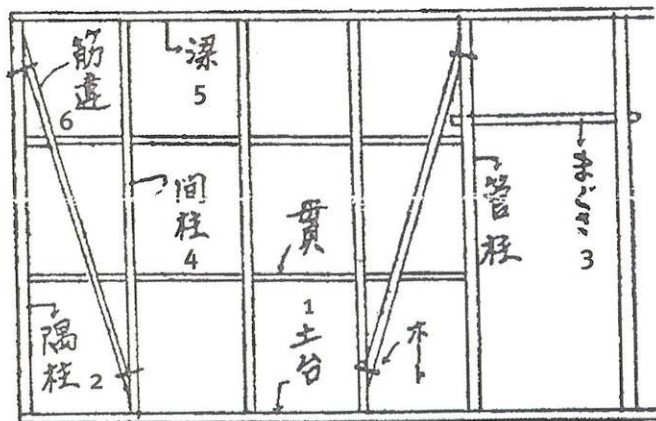 筋違
6
梁
5
間柱
4
貫
管柱
まぐさ
3
隅柱
2
1
土台
ボート